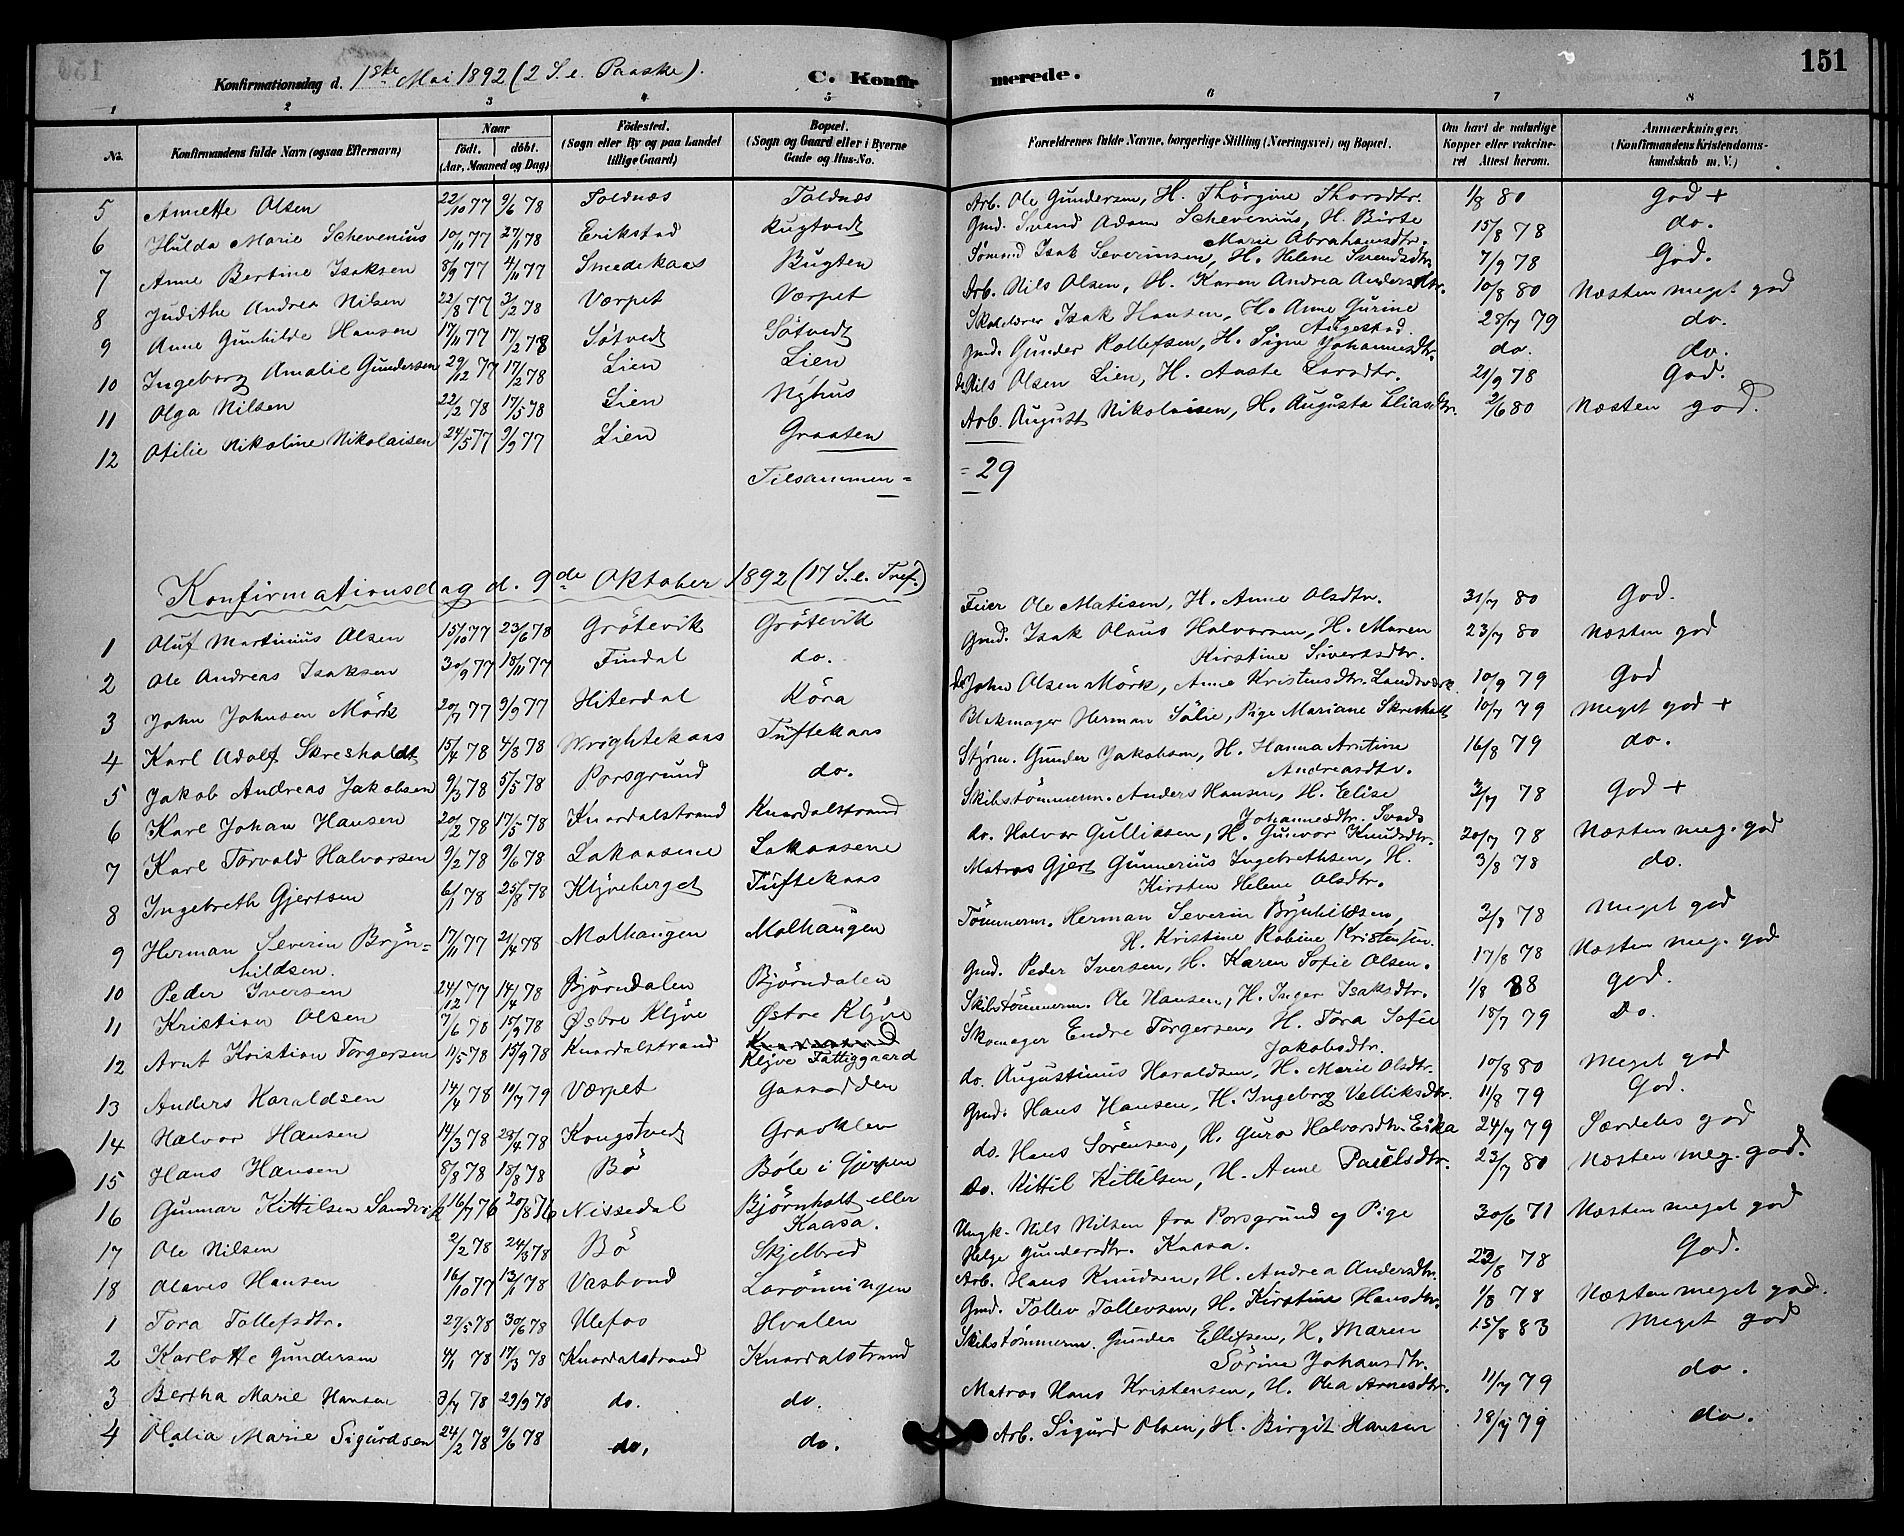 Konfirmationsdag d. 1ste Mai 1892 (2 S. e. Paaske).
C. Konfirmerede.
151
1 2 3 4 5 6 7 8
No.
Konfirmandens fulde Navn (ogsaa Efternavn)
Naar
født. døbt.
(Aar, Maaned og Dag)
Fødested.
(Sogn eller By og paa Landet tillige Gaard)
Bopæl.
(Sogn og Gaard eller i Byerne Gade og Hus-No.
Forældrenes fulde Navne, borgerlige Stilling (Næringsvei) og Bopæl.
Om havt de naturlige Kopper eller vakcineret Attest herom.
Anmærkninger.
(Konfirmandens Kristendomskundskab m. V.)
5 Annette Olsen 22/10 77 9/6 78 Toldnæs Toldnæs Arb. Ole Gundersen, H. Thörgine Thorsdtr. 1/8 80 God +
6 Hulda Marie Schevenius 10/11 77 27/1 78 Erikstad Rugtvedt Gmd. Svend Adam Schevenius, H. Birte Marie Abrahamsdtr. 15/8 78 do.
7 Anne Bertine Isaksen 8/9 77 4/11 77 Smedekaas Bugten Sömand Isak Severinsen, H. Helene Svendsdtr. 7/9 78 God.
8 Judithe Andrea Nilsen 22/8 77 3/2 78 Værpet Værpet Arb. Nils Olsen, H. Karen Andrea Andersdtr. 10/8 80 Næsten meget god
9 Anne Gunhilde Hansen 17/11 77 17/2 78 Sötvedt Sötvedt Skolelærer Isak Hansen, H. Anne Gurine Augestad. 28/7 79 do.
10 Ingeborg Amalie Gundersen 29/12 77 17/2 78 Lien Lien Gmd. Gunder Rollefsen, H. Signe Johannesdtr. do. do.
11 Olga Nilsen 22/2 78 17/5 78 Lien Nyhus do Nils Olsen Lien, H. Aaste Larsdtr. 21/9 78 God.
12 Otilie Nikoline Nikolaisen 24/5 77 9/9 77 Lien Graaten Arb. August Nikolaisen, H. Augusta Eliasdtr. 2/6 80 Næsten god.
Tilsammen = = 29
Konfirmationsdag d. 9de Oktober 1892 (17 S. e. Tref.)
1 Oluf Martinius Olsen 15/10 77 23/6 78 Grötevik Grötevik Feier Ole Matisen, H. Anne Olsdtr. 31/7 80 God.
2 Ole Andreas Isaksen 30/9 77 18/11 77 Findal do. Gmd. Isak Olaus Halvorsen, H. Maren Kirstine Sivertsdtr. 23/7 80 Næsten god
3 John Johnsen Mörk 20/7 77 9/9 77 Hiterdal Köra do John Olsen Mörk, Anne Kristensdtr. Landsverk 10/9 79 God
4 Karl Adolf Skresholdt 15/4 78 4/8 78 Wrightekaas Tuftekaas Blokmager Herman Sölie, Pige Mariane Skresholt 10/7 79 meget god +
5 Jakob Andreas Jakobsen 9/3 78 5/5 78 Porsgrund do. Styrm. Gunder Jakobsen, H. Hanna Arntine Andreasdtr. 16/8 79 do.
6 Karl Johan Hansen 20/2 78 17/5 78 Knardalstrand Knardalstrand Skibstömmerm. Anders Hansen, H. Elise Johannesdtr. 3/7 78 God +
7 Karl Torvald Halvorsen 9/2 78 9/6 78 Lakaasene Lakaasene do. Halvor Gulliksen, H. Gunvor Knudsdtr. 20/7 78 Næsten meg. god
8 Ingebreth Gjertsen 6/1 78 25/8 78 Klyveberget Tuftekaas Matros Gjert Gunnerius Ingebrethsen, H. Kirsten Helene Olsdtr. 3/8 78 do.
9 Herman Severin Bryn=hildsen. 17/11 77 21/4 78 Molhaugen Molhaugen Tömmerm. Herman Severin Brynhildsen, H. Kristine Robine Kristensen. 3/8 78 Meget god
10 Peder Iversen 24/12 77 14/4 78 Björndalen Björndalen Gmd. Peder Iversen, H. Karen Sofie Olsen. 17/8 78 Næsten meg. god
11 Kristian Olsen 7/6 78 15/9 78 Østre Klyve Østre Klyve Skibstömmerm. Ole Hansen, H. Inger Isaksdtr. 1/8 88 god.
12 Arnt Kristian Torgersen 11/5 78 15/9 78 Knardalstrand Klyve Fattiggaard Skomager Endre Torgersen, H. Tora Sofie Jakobsdtr. 18/7 79 Do.
13 Anders Haraldsen 14/4 78 11/7 79 Værpet Gaasodden do. Augustinus Haraldsen, H. Marie Olsdtr. 10/8 80 Meget god
14 Halvor Hansen 14/3 78 28/4 78 Kongstvedt Gravklev Gmd. Hans Hansen, H. Ingeborg Velliksdtr. 11/8 79 God.
15 Hans Hansen 8/8 78 18/8 78 Bö Böle i Gjerpen do. Hans Sörensen, H. Guro Halvorsdtr. Eika 24/7 79 Særdeles god
16 Gunnar Kittilsen Sandvik 16/7 76 20/8 76 Nissedal Björnholt eller Kaasa. do. Kittil Kittilsen, H. Anne Paulsdtr. 23/7 80 Næsten meg. god.
17 Ole Nilsen 2/2 78 24/3 78 Bö Skjelbred Ungk. Nils Nilsen fra Porsgrund og Pige Helge Gundersdtr. Kaasa. 30/6 71 Næsten meget god
18 Olaves Hansen 16/10 77 13/1 78 Vasbond Larönningen Arb. Hans Knudsen, H. Andrea Andersdtr. 22/8 78 God.
1 Tora Tollefsdtr. 27/5 78 30/6 78 Ulefos Hvalen Gmd. Tollev Tollevsen, H. Kirstine Hansdtr. 1/8 78 Næsten meget god.
2 Karlotte Gundersen 4/1 78 17/3 78 Knardalstrand Knardalstrand Skibstömmerm. Gunder Ellefsen, H. Maren Sörine Johansdtr. 15/8 83 Meget god
3 Bertha Marie Hansen 3/7 78 29/9 78 do. do. Matros Hans Kristensen, H. Olea Arnesdtr. 11/7 79 do.
4 Olalia Marie Sigurdsen 24/2 78 9/6 78 do. do. Arb. Sigurd Olsen, H. Birgit Hansen 18/7 79 do.